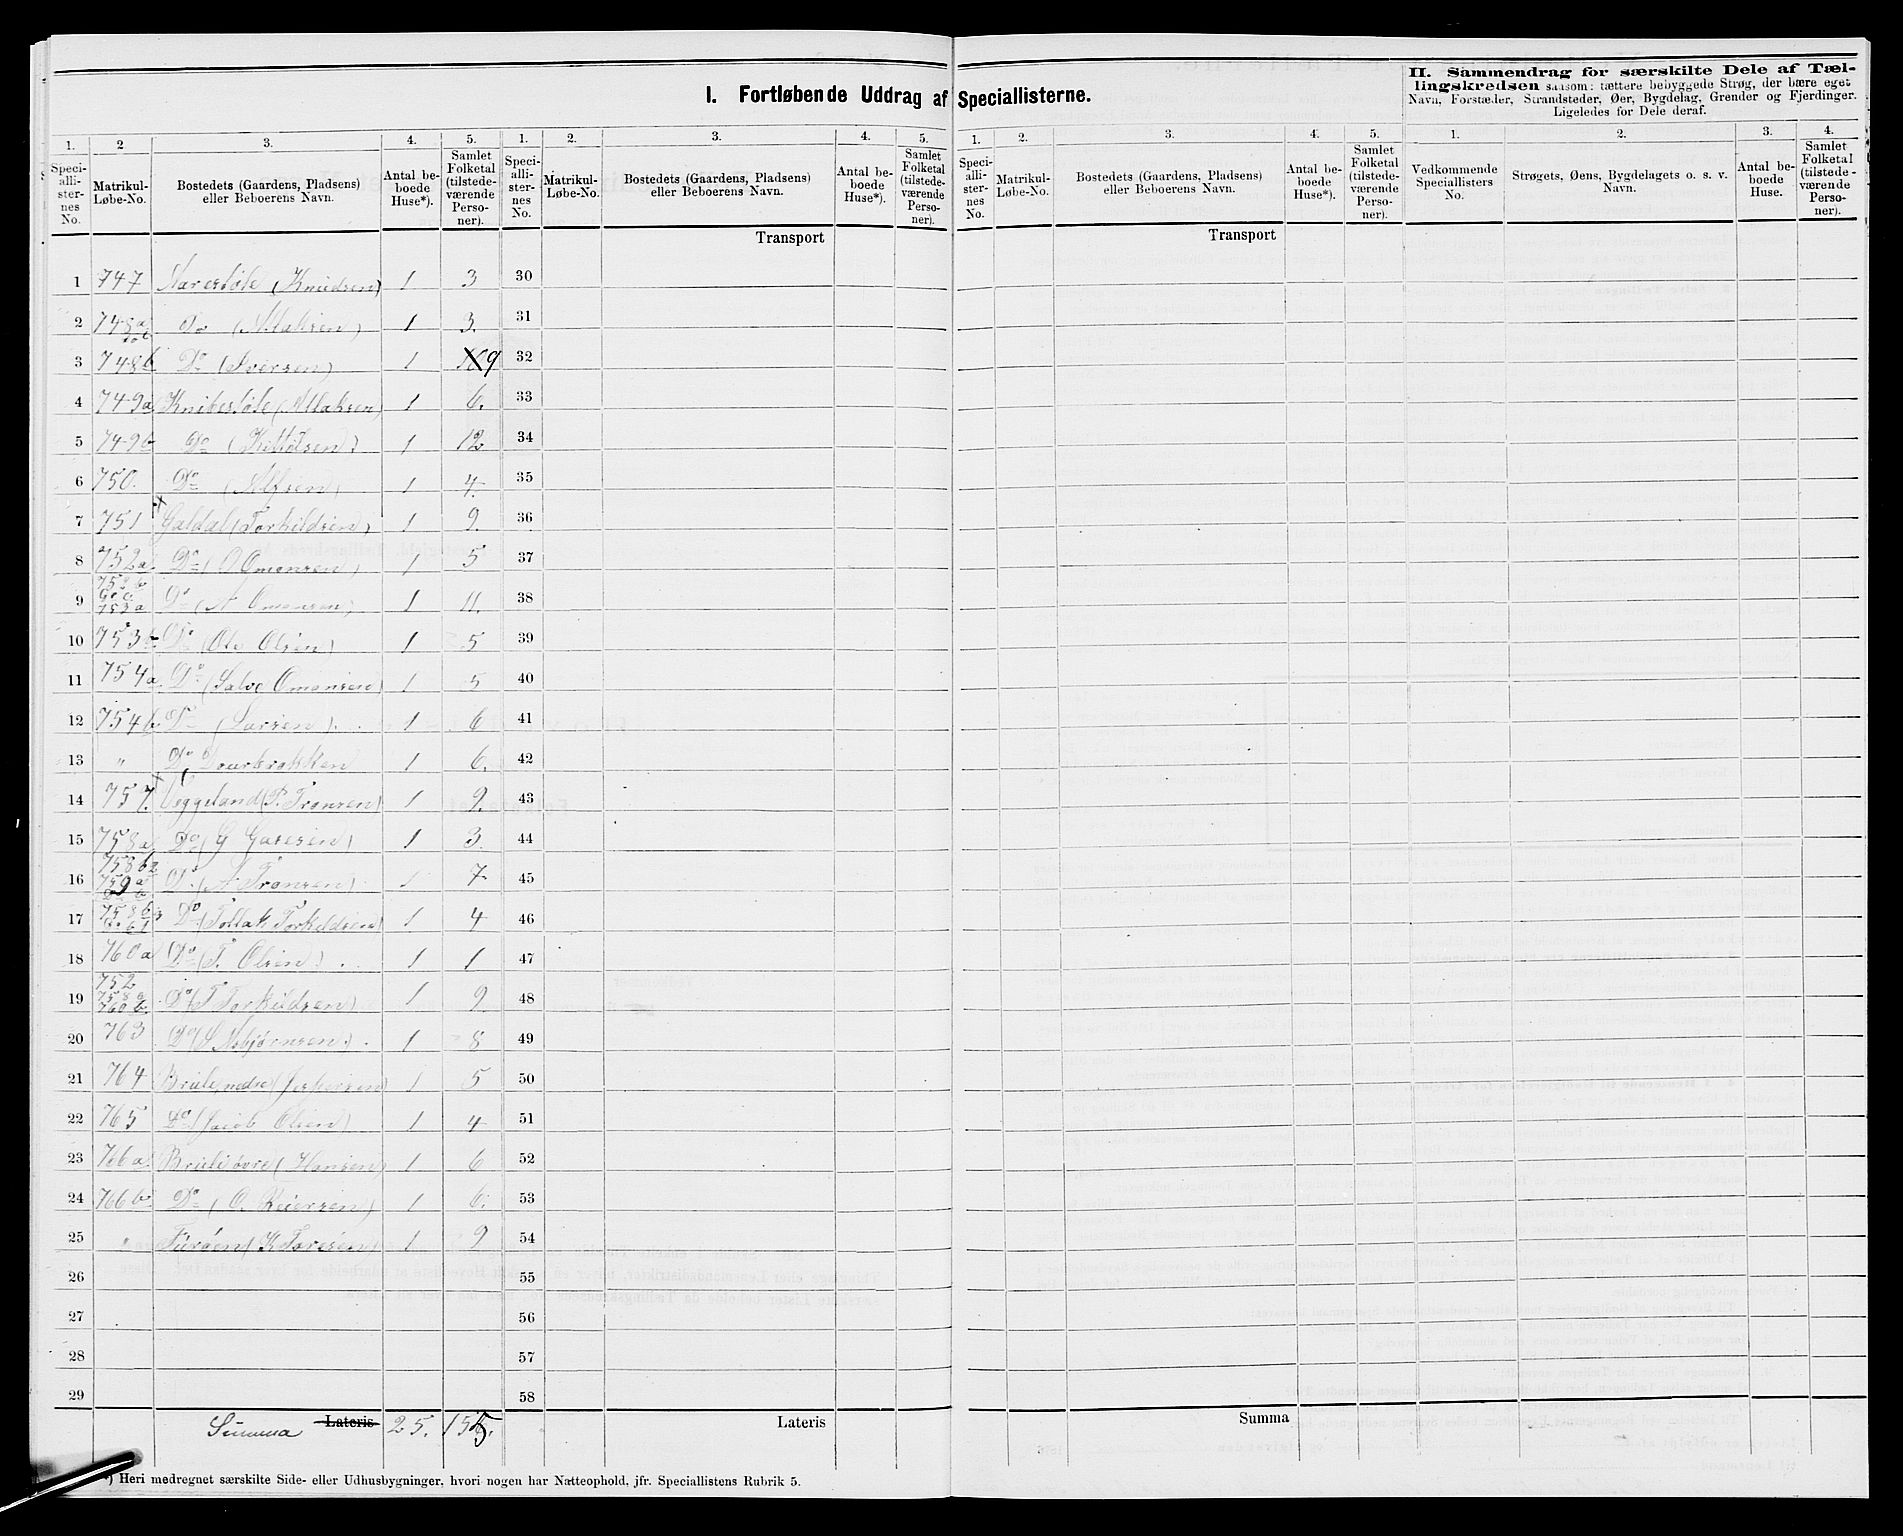 I. Fortløbende Uddrag af Speciallisterne.
II. Sammendrag for særskilte Dele af Tæl-
lingskredsen saasom: tættere bebyggede Strøg, der bære eget
Navn, Forstæder, Strandsteder, Øer, Bygdelag, Grender og Fjerdinger.
Ligeledes for Dele deraf.
1. 2 3. 4. 5. 1. 2. 3. 4. 5. 1. 2. 3. 4. 5. 1. 2. 3. 4.
Speci-alli-ster-nes No. Matrikul-Løbe-No. Bostedets (Gaardens, Pladsens) eller Beboerens Navn. Antal be-boede Huse*). Samlet Folketal (tilstede-værende Perso-ner).
Speci-alli-ster-nes No. Matrikul-Løbe-No. Bostedets (Gaardens, Pladsens) eller Beboerens Navn. Antal be-boede Huse*). Samlet Folketal (tilstede-værende Perso-ner).
Speci-alli-ster-nes No. Matrikul-Løbe-No. Bostedets (Gaardens, Pladsens) eller Beboerens Navn. Antal be-boede Huse*). Samlet Folketal (tilstede-værende Perso-ner).
Vedkommende Speciallisters No. Strøgets, Øens, Bygdelagets o. s. v. Navn. Antal be-boede Huse. Samlet Folketal (tilstede-værende Perso-ner).
Transport Transport
1 747 (Knudsen) 1 3 30
2 748a Do 1 3. 31
3 748b Do (Iversen) 1 9 32
4 749a 1 6. 33
5 749b Do (Kittelsen) 1 12 34
6 750. Do (Alfsen) 1 4. 35
7 751 Galdal (Torkildsen) 1 9. 36
8 752a Do (O Omonsen) 1 5 37
9 753a Do (A Omonsen) 1 11. 38
10 753b Do (Ole Olsen) 1 5 39
11 754a Do (Salve Omonsen) 1 5 40
12 754b Do (Larsen) 1 6 41
13 " Do 1 6. 42
14 757. Veggeland (P. Tronsen) 1 9. 43
15 758a Do (G 1 3. 44
16 758b2 759a Do (A Tronsen) 1 7 45
17 758b3 Do (Tollak Torkildsen) 1 4 46
18 760a Do (T. Olsen) 1 1 47
19 752 758a 760b. Do (T Torkildsen) 1 9. 48
20 763 Do (S Asbjørnsen) 1 8 49
21 764 nedre (Jespersen) 1 5 50
22 765 Do (Jacob Olsen) 1 4 51
23 766a øvre (Hansen) 1 6 52
24 766b Do (O. Reiersen) 1 6. 53
25 " (K Toresen) 1 9 54
26 55
27 56
28 57
29 58
Summa Lateris 25. 155. Lateris Summa
*) Heri medregnet særskilte Side- eller Udhusbygninger, hvori nogen har Natteophold, jfr. Speciallistens Rubrik 5.